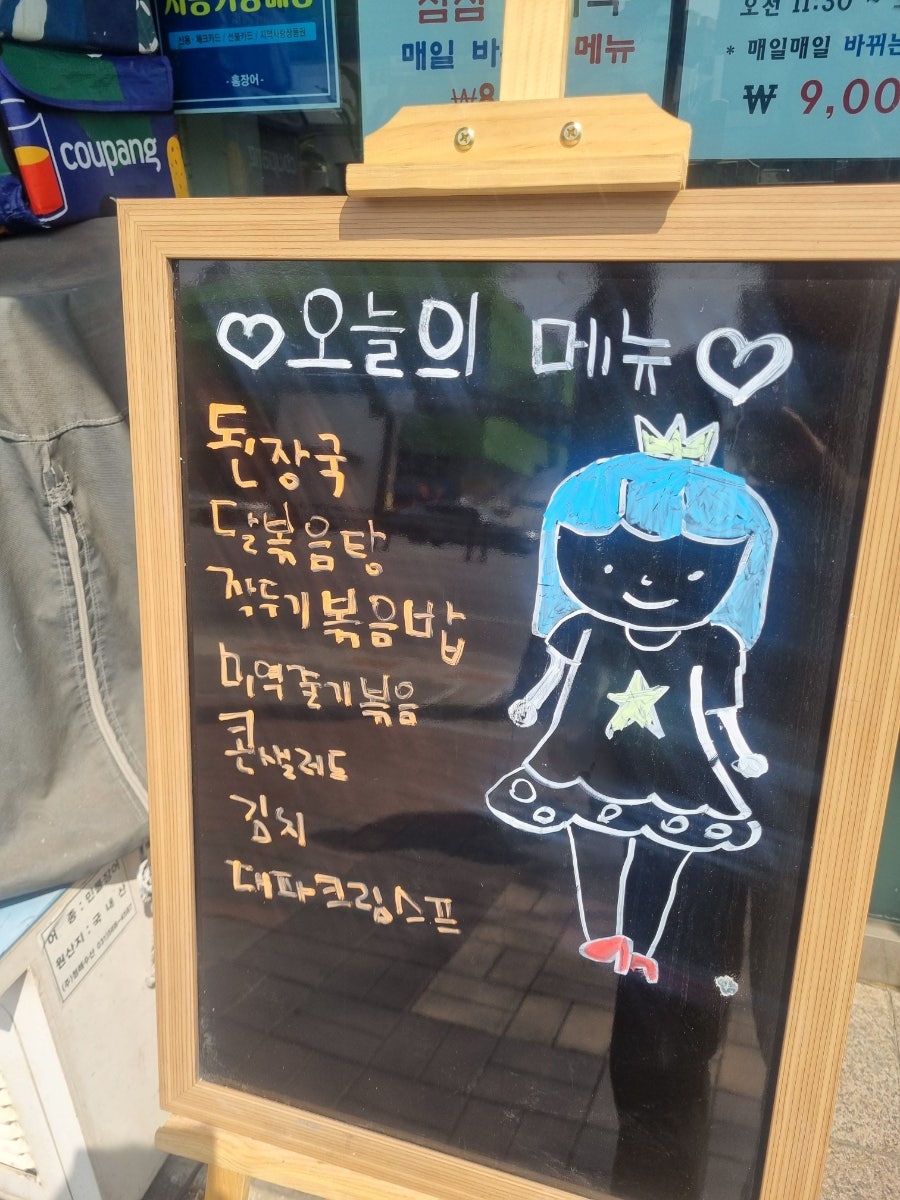 신용·체크카드 / 선불카드 / 지역사랑상품권
-홍장어-
coupang
점심
매일 바
메뉴
₩8
오전 11:30 ~
* 매일매일 바뀌는
₩ 9,00
♡오늘의 메뉴♡
된장국
달볶음탕
작두기볶음밥
미역줄기볶음
콘샐러드
김치
대파크림스프
어 종 : 민물장어
원산지 : 국내산